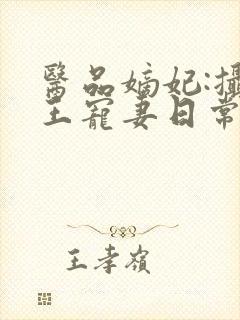 醫品嫡妃:攝
王寵妻日常
王孝嶺